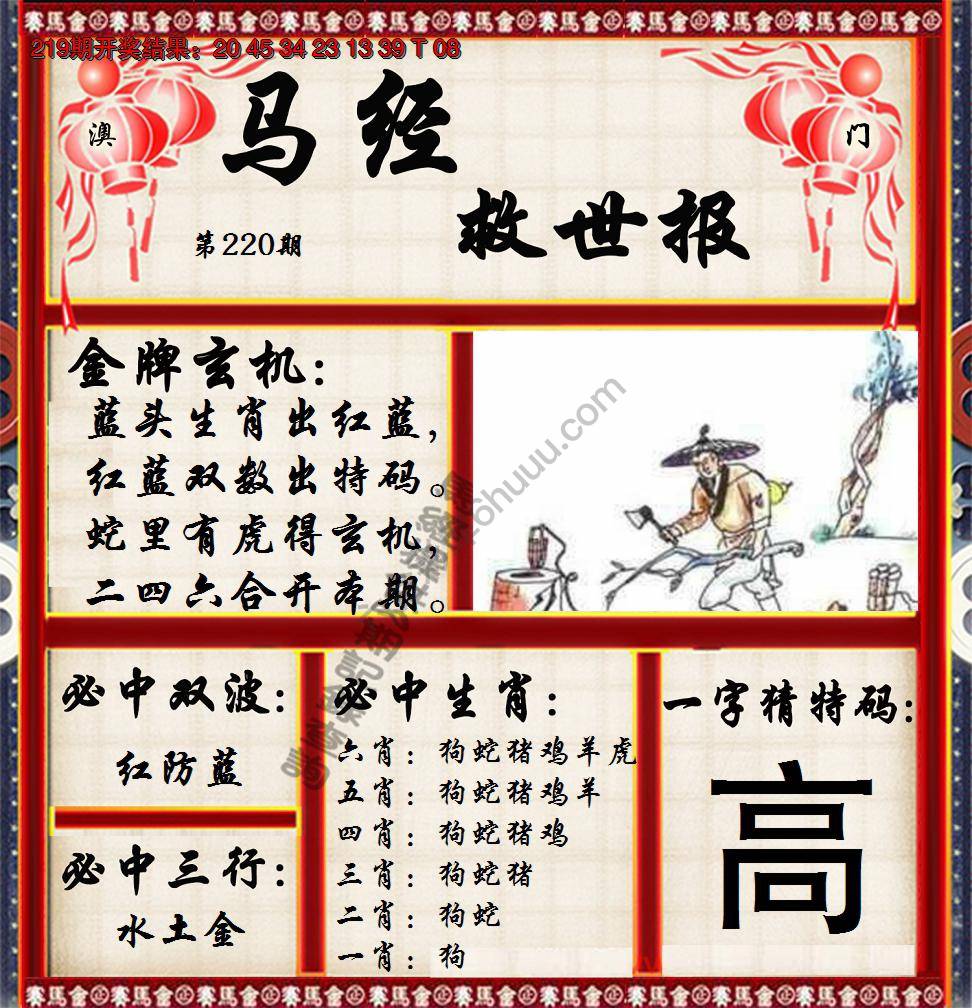 219期开奖结果：20 45 34 23 13 39 T 08
澳
门
马经
救世报
第220期
金牌玄机：
蓝头生肖出红蓝，
红蓝双数出特码。
蛇里有虎得玄机，
二四六合开本期。
必中双波：
红防蓝
必中三行：
水土金
必中生肖：
六肖：狗蛇猪鸡羊虎
五肖：狗蛇猪鸡羊
四肖：狗蛇猪鸡
三肖：狗蛇猪
二肖：狗蛇
一肖：狗
一字猜特码：
高